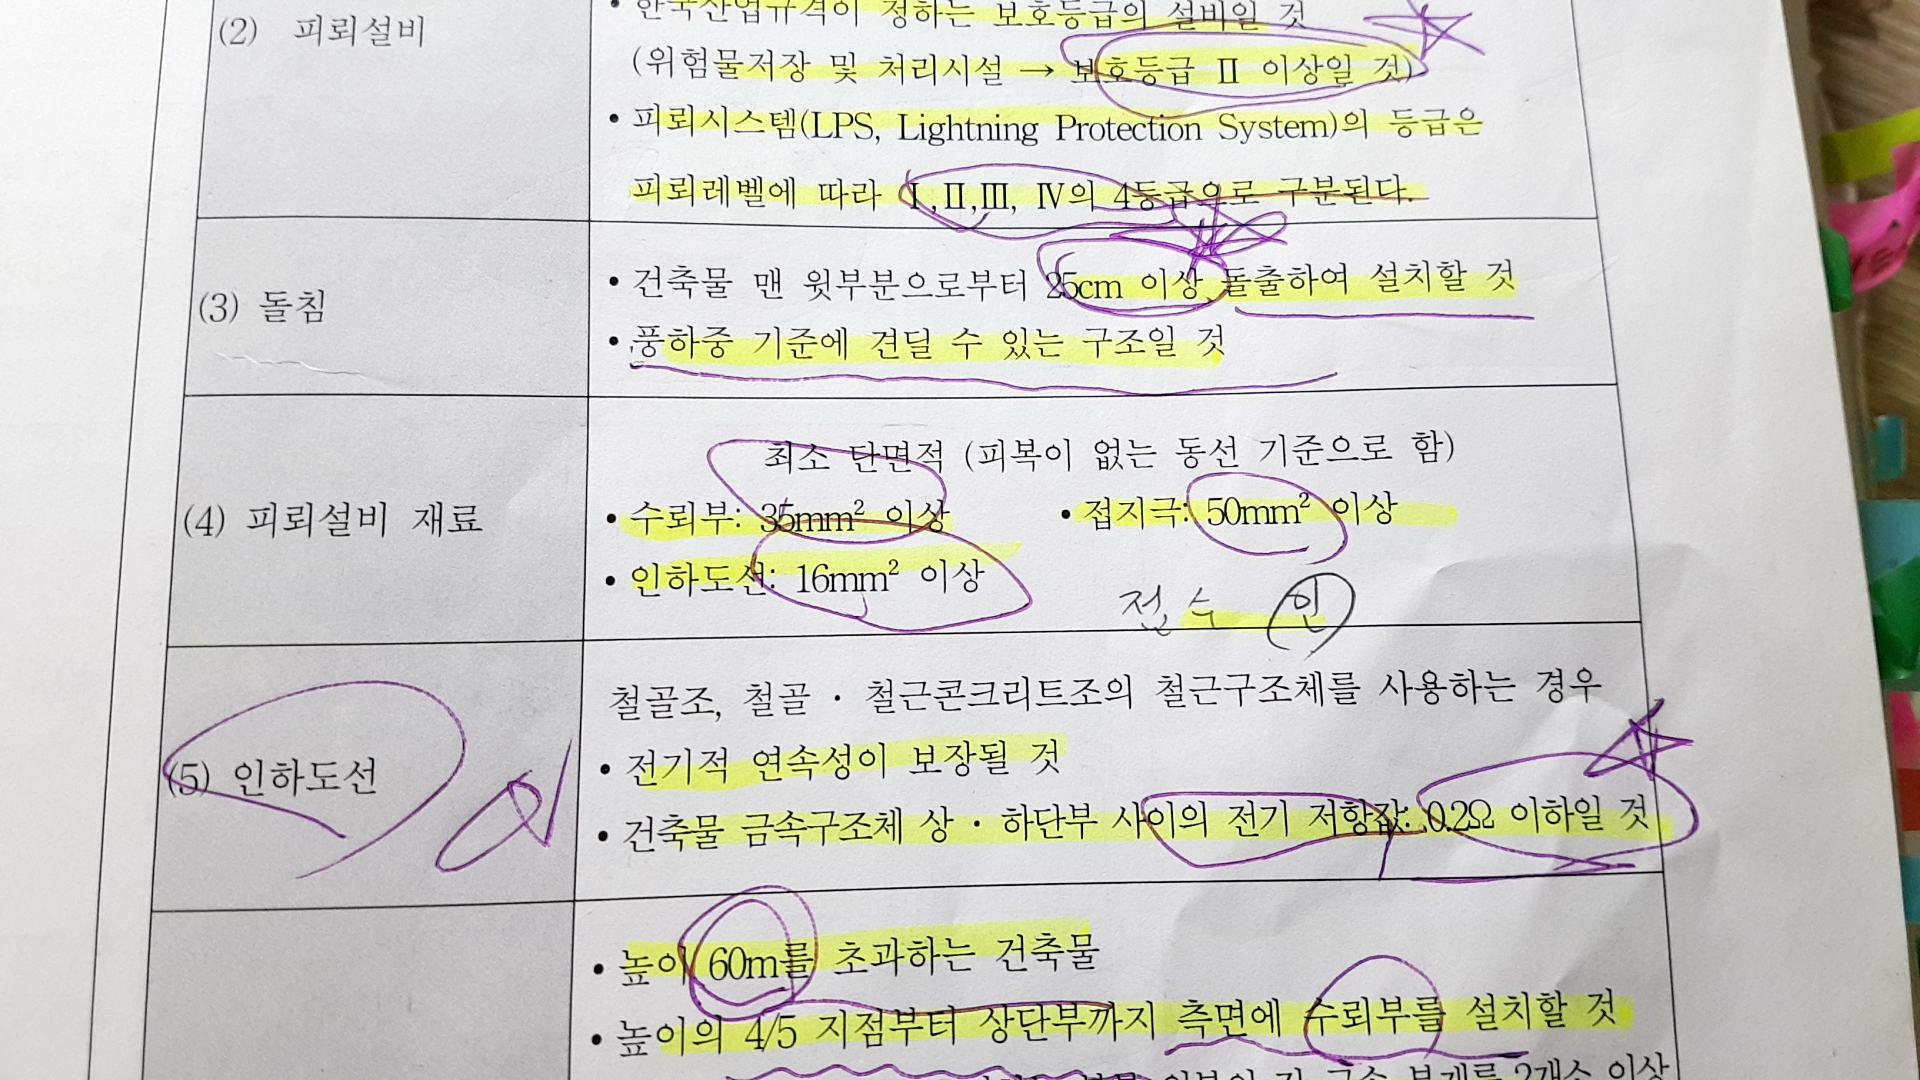 한국산업규격이 정하는 보호등급의 설비일 것
(2) 피뢰설비
(위험물저장 및 처리시설 → 보호등급 Ⅱ 이상일 것)
• 피뢰시스템(LPS, Lightning Protection System)의 등급은
피뢰레벨에 따라 Ⅰ,Ⅱ,Ⅲ, Ⅳ의 4등급으로 구분된다.
(3) 돌침
• 건축물 맨 윗부분으로부터 25cm 이상 돌출하여 설치할 것
• 풍하중 기준에 견딜 수 있는 구조일 것
(4) 피뢰설비 재료
최소 단면적 (피복이 없는 동선 기준으로 함)
• 수뢰부: 35mm² 이상 • 접지극: 50mm² 이상
• 인하도선: 16mm² 이상
접 수 인
(5) 인하도선
철골조, 철골 · 철근콘크리트조의 철근구조체를 사용하는 경우
• 전기적 연속성이 보장될 것
• 건축물 금속구조체 상 · 하단부 사이의 전기 저항값: 0.2Ω 이하일 것
• 높이 60m를 초과하는 건축물
• 높이의 4/5 지점부터 상단부까지 측면에 수뢰부를 설치할 것
2개소 이상